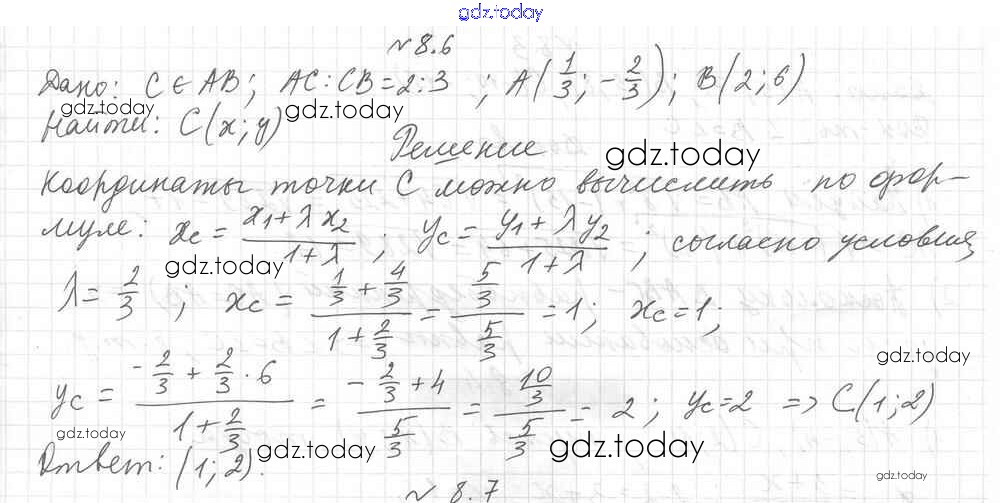 gdz.today
№ 8.6
Дано: C ∈ AB; AC : CB = 2 : 3 ; A(1/3; -2/3); B(2; 6)
gdz.today
Найти: C(x; y) gdz.today
Решение gdz.today
Координаты точки C можно вычислить по фор-
муле: x_C = (x_1 + λx_2)/(1 + λ) ; y_C = (y_1 + λy_2)/(1 + λ) ; согласно условия
gdz.today gdz.today
λ = 2/3 ; x_C = (1/3 + 4/3)/(1 + 2/3) = (5/3)/(5/3) = 1; x_C = 1;
gdz.today
y_C = (-2/3 + 2/3 · 6)/(1 + 2/3) = (-2/3 + 4)/(5/3) = (10/3)/(5/3) = 2; y_C = 2 => C(1; 2)
gdz.today gdz.today gdz.today
Ответ: (1; 2).
gdz.today
№ 8.7